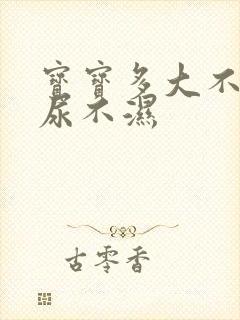 寶寶多大不
尿不濕
古零香